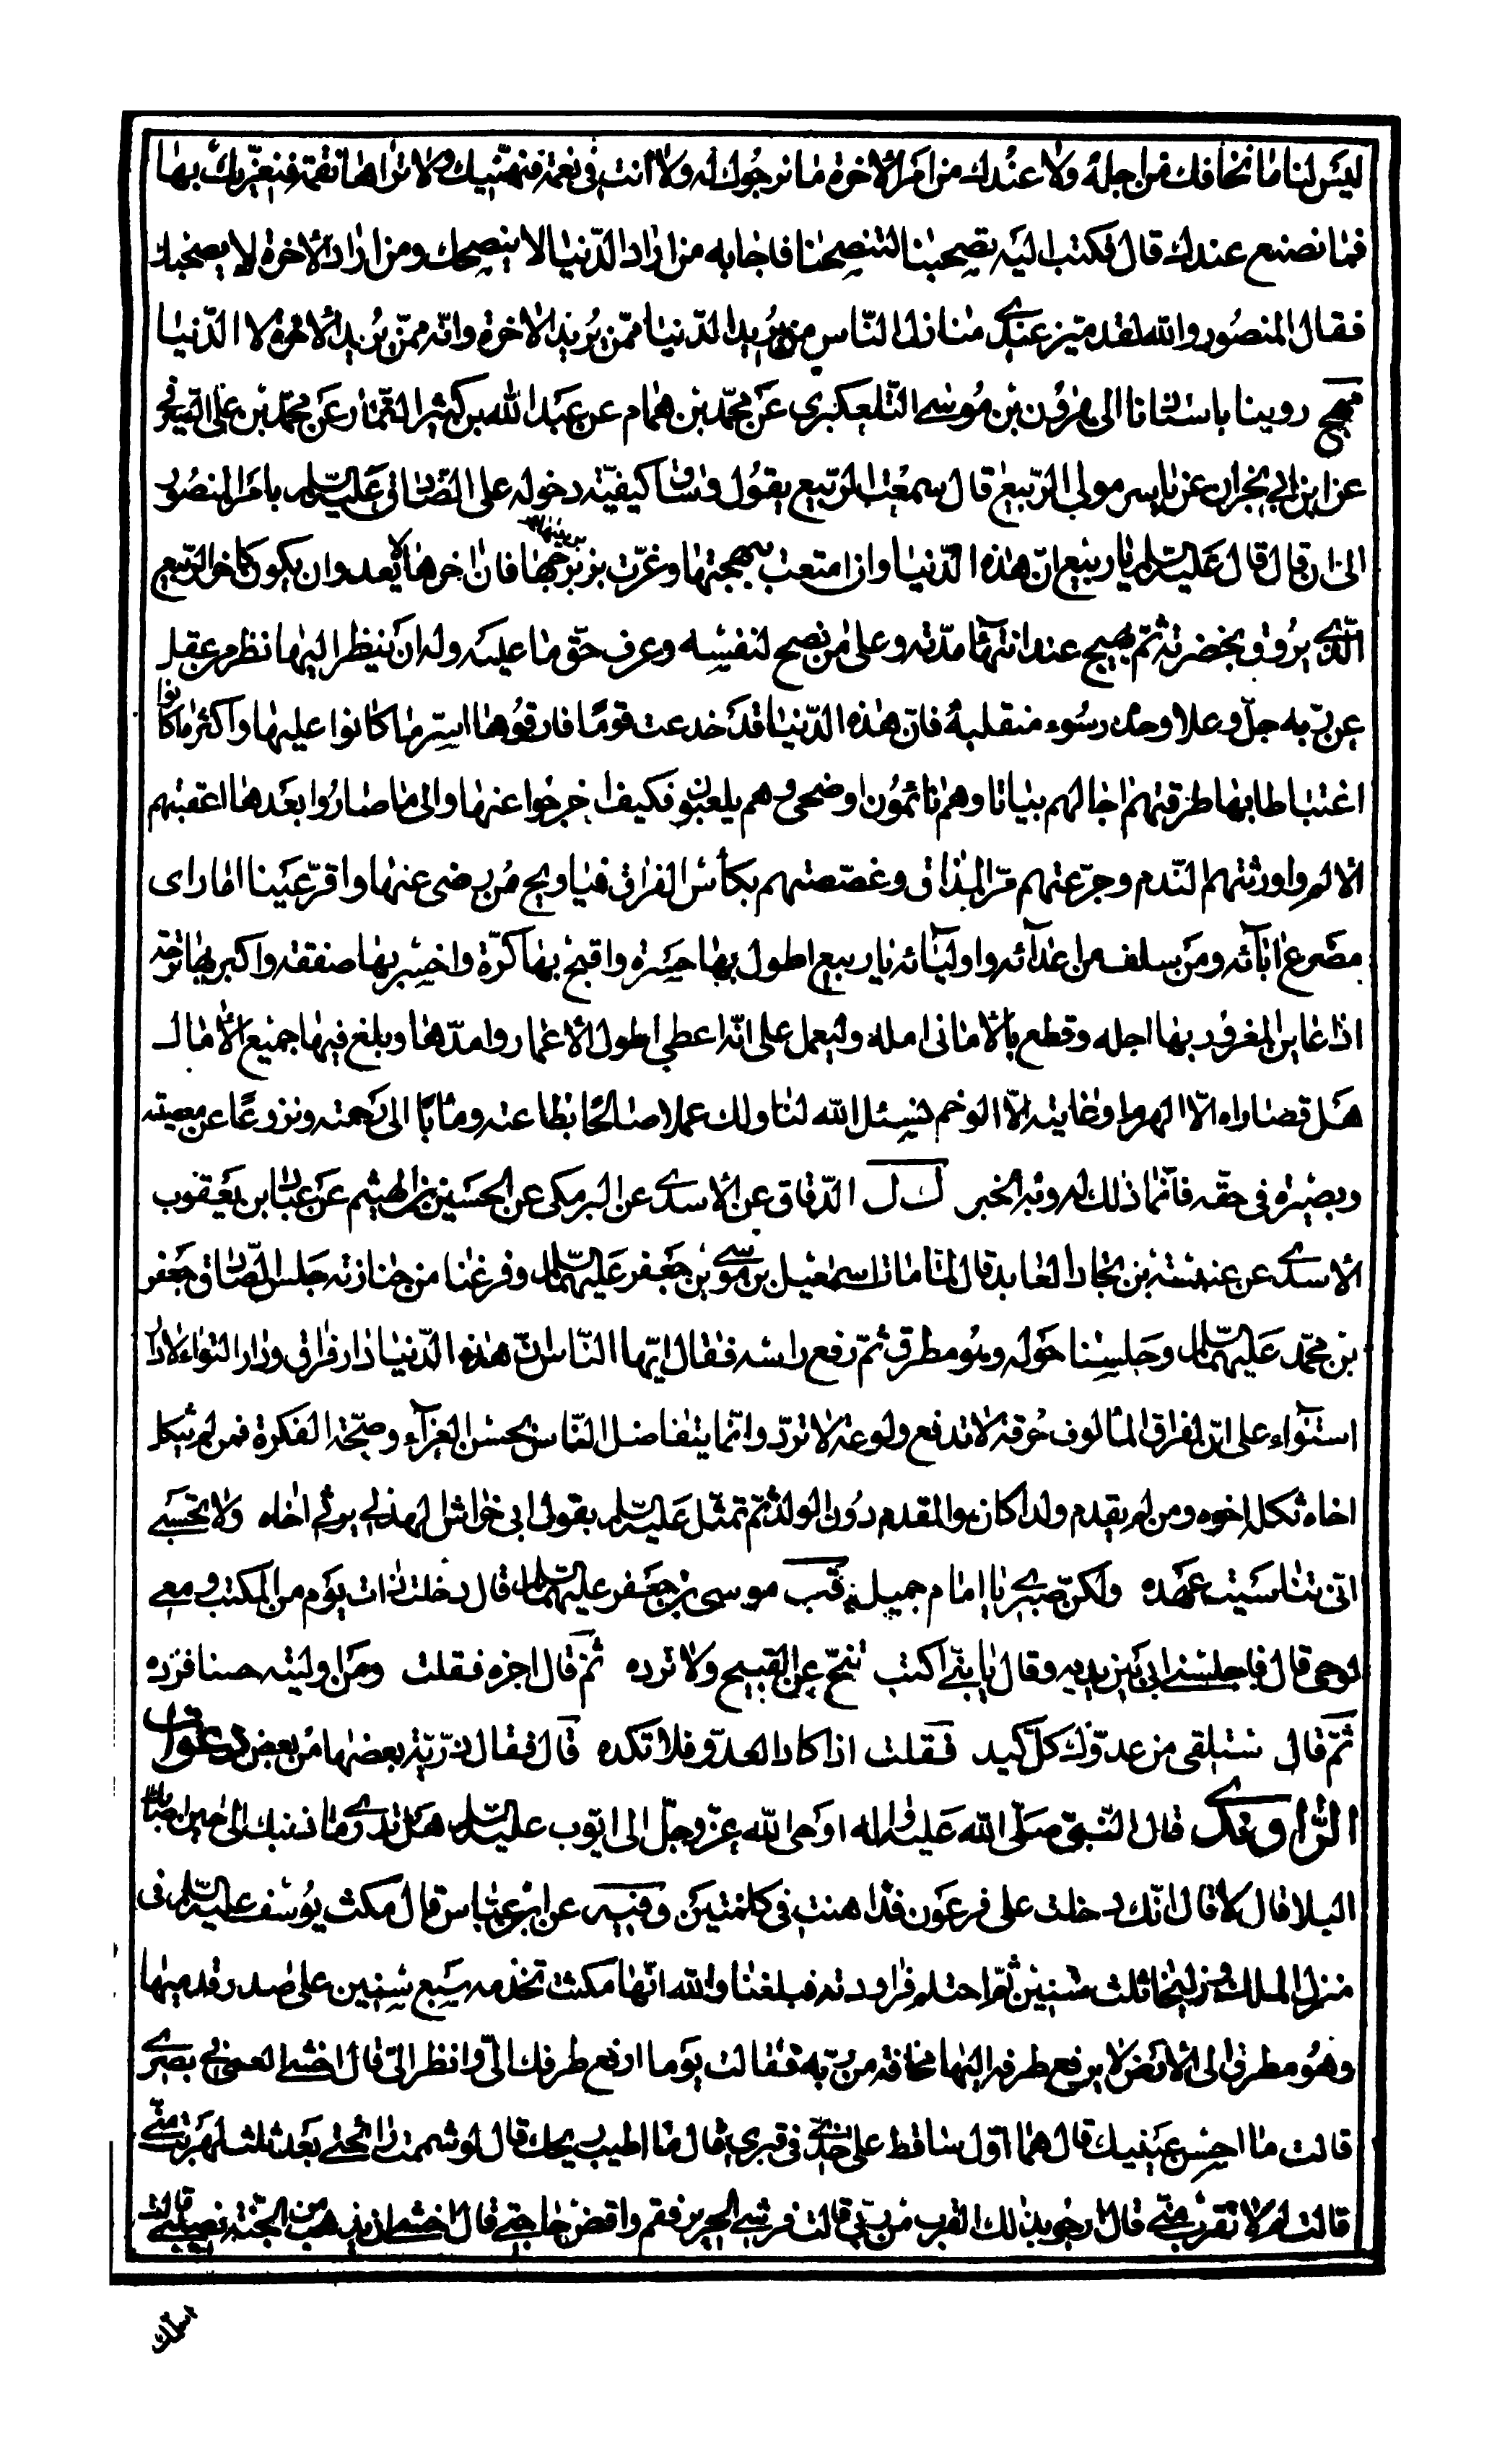 ليس لنا ما نخافك من اجله ولا عندك من امر الاخرة ما نرجوك له ولا انت في نعمة فنهنّيك ولا تراها نقمة فنعزّيك بها
فما نصنع عندك قال فكتب اليه تصحبنا لتنصحنا فاجابه من اراد الدّنيا لا ينصحك ومن اراد الاخرة لا يصحبك
فقال المنصور والله لقد ميّز عندي منازل النّاس من يريد الدّنيا ممّن يريد الاخرة وانّه ممّن يريد الاخرة لا الدّنيا
مهج روينا باسنادنا الى هرون بن موسى التّلعكبري عن محمّد بن همام عن عبد الله بن كثير التّمّار عن محمّد بن علي الصيرفي
عن ابن ابي نجران عن ياسر مولى الرّبيع قال سمعت الرّبيع يقول وساق كيفيّة دخوله على الصّادق عليه السلام بامر المنصور
الى ان قال قال عليه السلام يا ربيع انّ هذه الدّنيا وان امتعت ببهجتها وغرّت بزبرجها فانّ اخرها لا يعدو ان يكون كاخر الرّبيع
الّذي يروق بخضرته ثمّ يهيج عند انتهآء مدّته وعلى من نصح لنفسه وعرف حقّ ما عليه وله ان ينظر اليها نظر من عقل
عن ربّه جلّ وعلا وحذر سوء منقلبه فانّ هذه الدّنيا قد خدعت قومًا فارقوها اسرّ ما كانوا عليها واكثر ما كانوا
اغتباطا بها طرقتهم اجالهم بياتا وهم نائمون او ضحى وهم يلعبون فكيف اخرجوا عنها والى ما صاروا بعدها اعقبتهم
الالم واورثتهم النّدم وجرّعتهم مرّ المذاق وغصّصتهم بكأس الفراق فيا ويح من رضى عنها واقرّ عينا اما راى
مصرع ابآئه ومن سلف من اعدآئه واوليآئه يا ربيع اطول بها حسرة واقبح بها كرّة واخسر بها صفقة واكبر بها ترحة
اذا عاين المغرور بها اجله وقطع بالاماني امله وليعمل على انّه اعطي اطول الاعمار وامدّها وبلغ فيها جميع الامال
هل قصاراه الّا الهرم او غايته الّا الوخم نسئل الله لنا ولك عملا صالحًا بطاعته ومأبًا الى رحمته ونزوعًا عن معصيته
وبصيرة في حقّه فانّما ذلك له وبه الخبر ك ل الدّقاق عن الاسدي عن البرمكي عن الحسين بن الهيثم عن عباد بن يعقوب
الاسدي عن عنبسة بن بجاد العابد قال لمّا مات اسمعيل بن موسى بن جعفر عليهما السلام وفرغنا من جنازته جلس الصّادق جعفر
بن محمّد عليهما السلام وجلسنا حوله وهو مطرق ثمّ رفع راسه فقال ايّها النّاس انّ هذه الدّنيا دار فراق ودار التواء لا دار
استواء على انّ لفراق المألوف حرقة لا تدفع ولوعة لا تردّ وانّما يتفاضل النّاس بحسن العزآء وصحّة الفكرة فمن لم يثكل
اخاه ثكله اخوه ومن لم يقدم ولدا كان هو المقدم دون الولد ثمّ تمثّل عليه السلام بقول ابي خراش الهذلي يرثي اخاه ولا تحسبي
اني تناسيت عهده ولكنّ صبري يا امام جميل قب موسى بن جعفر عليهما السلام قال دخلت ذات يوم من المكتب ومعي
لوحي قال فاجلسني ابي بين يديه وقال يا بنيّ اكتب تنحّ عن القبيح ولا ترده ثمّ قال اجزه فقلت ومن اوليته حسنا فزده
ثمّ قال ستلقى من عدوّك كلّ كيد فقلت اذا كاد العدوّ فلا تكده قال فقال ذرّيّة بعضها من بعض دعوات
الرّاوندي قال النّبيّ صلّى الله عليه واله اوحى الله عزّ وجلّ الى ايّوب عليه السلام هل تدري ما ذنبك الى حين اصابك
البلاء قال لا قال انّك دخلت على فرعون فداهنت في كلمتين وفيه عن ابن عبّاس قال مكث يوسف عليه السلام في
منزل الملك وزليخا ثلث سنين ثمّ احتلم فراودته فبلغنا والله انّها مكثت تخدمه سبع سنين على صدر قدميها
وهو مطرق الى الارض لا يرفع طرفه اليها مخافة من ربّه فقالت يوما ارفع طرفك الىّ وانظر الىّ قال اخشى العمى في بصري
قالت ما احسن عينيك قال هما اوّل ساقط على خدّي في قبري قال ما اطيب ريحك قال لو شممت رائحتي بعد ثلث لهربت منّي
قالت لم لا تقرب منّي قال ارجو بذلك القرب من ربّي قالت فرشي الحرير فقم واقض حاجتي قال اخشى ان يذهب من الجنّة نصيبي قالت
اسلمك